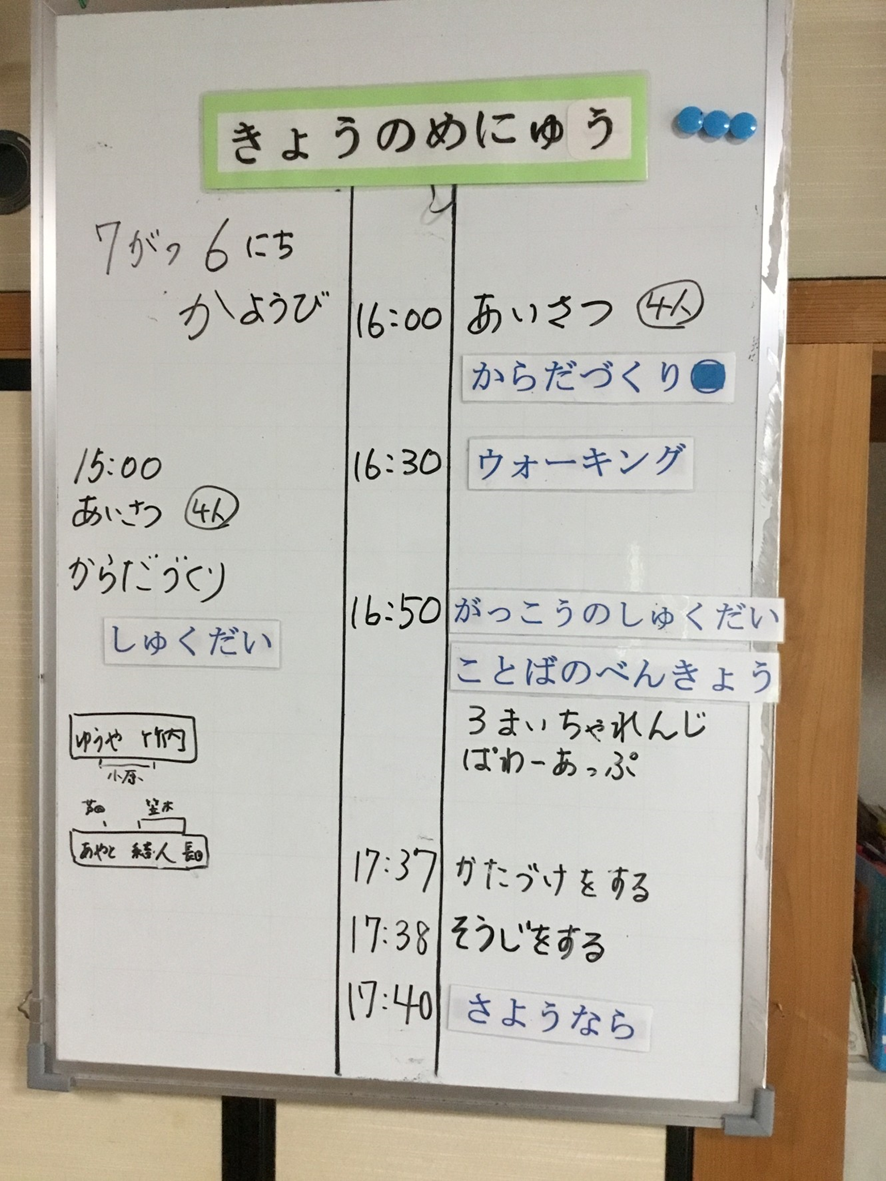 きょうのめにゅう
7がつ6にち
かようび
15:00
あいさつ 4人
からだづくり
しゅくだい
ゆうや 竹内
小原
笠木
あやと 結人 長田
16:00 あいさつ 4人
からだづくり
16:30 ウォーキング
16:50 がっこうのしゅくだい
ことばのべんきょう
3まいちゃれんじ
ぱわーあっぷ
17:37 かたづけをする
17:38 そうじをする
17:40 さようなら